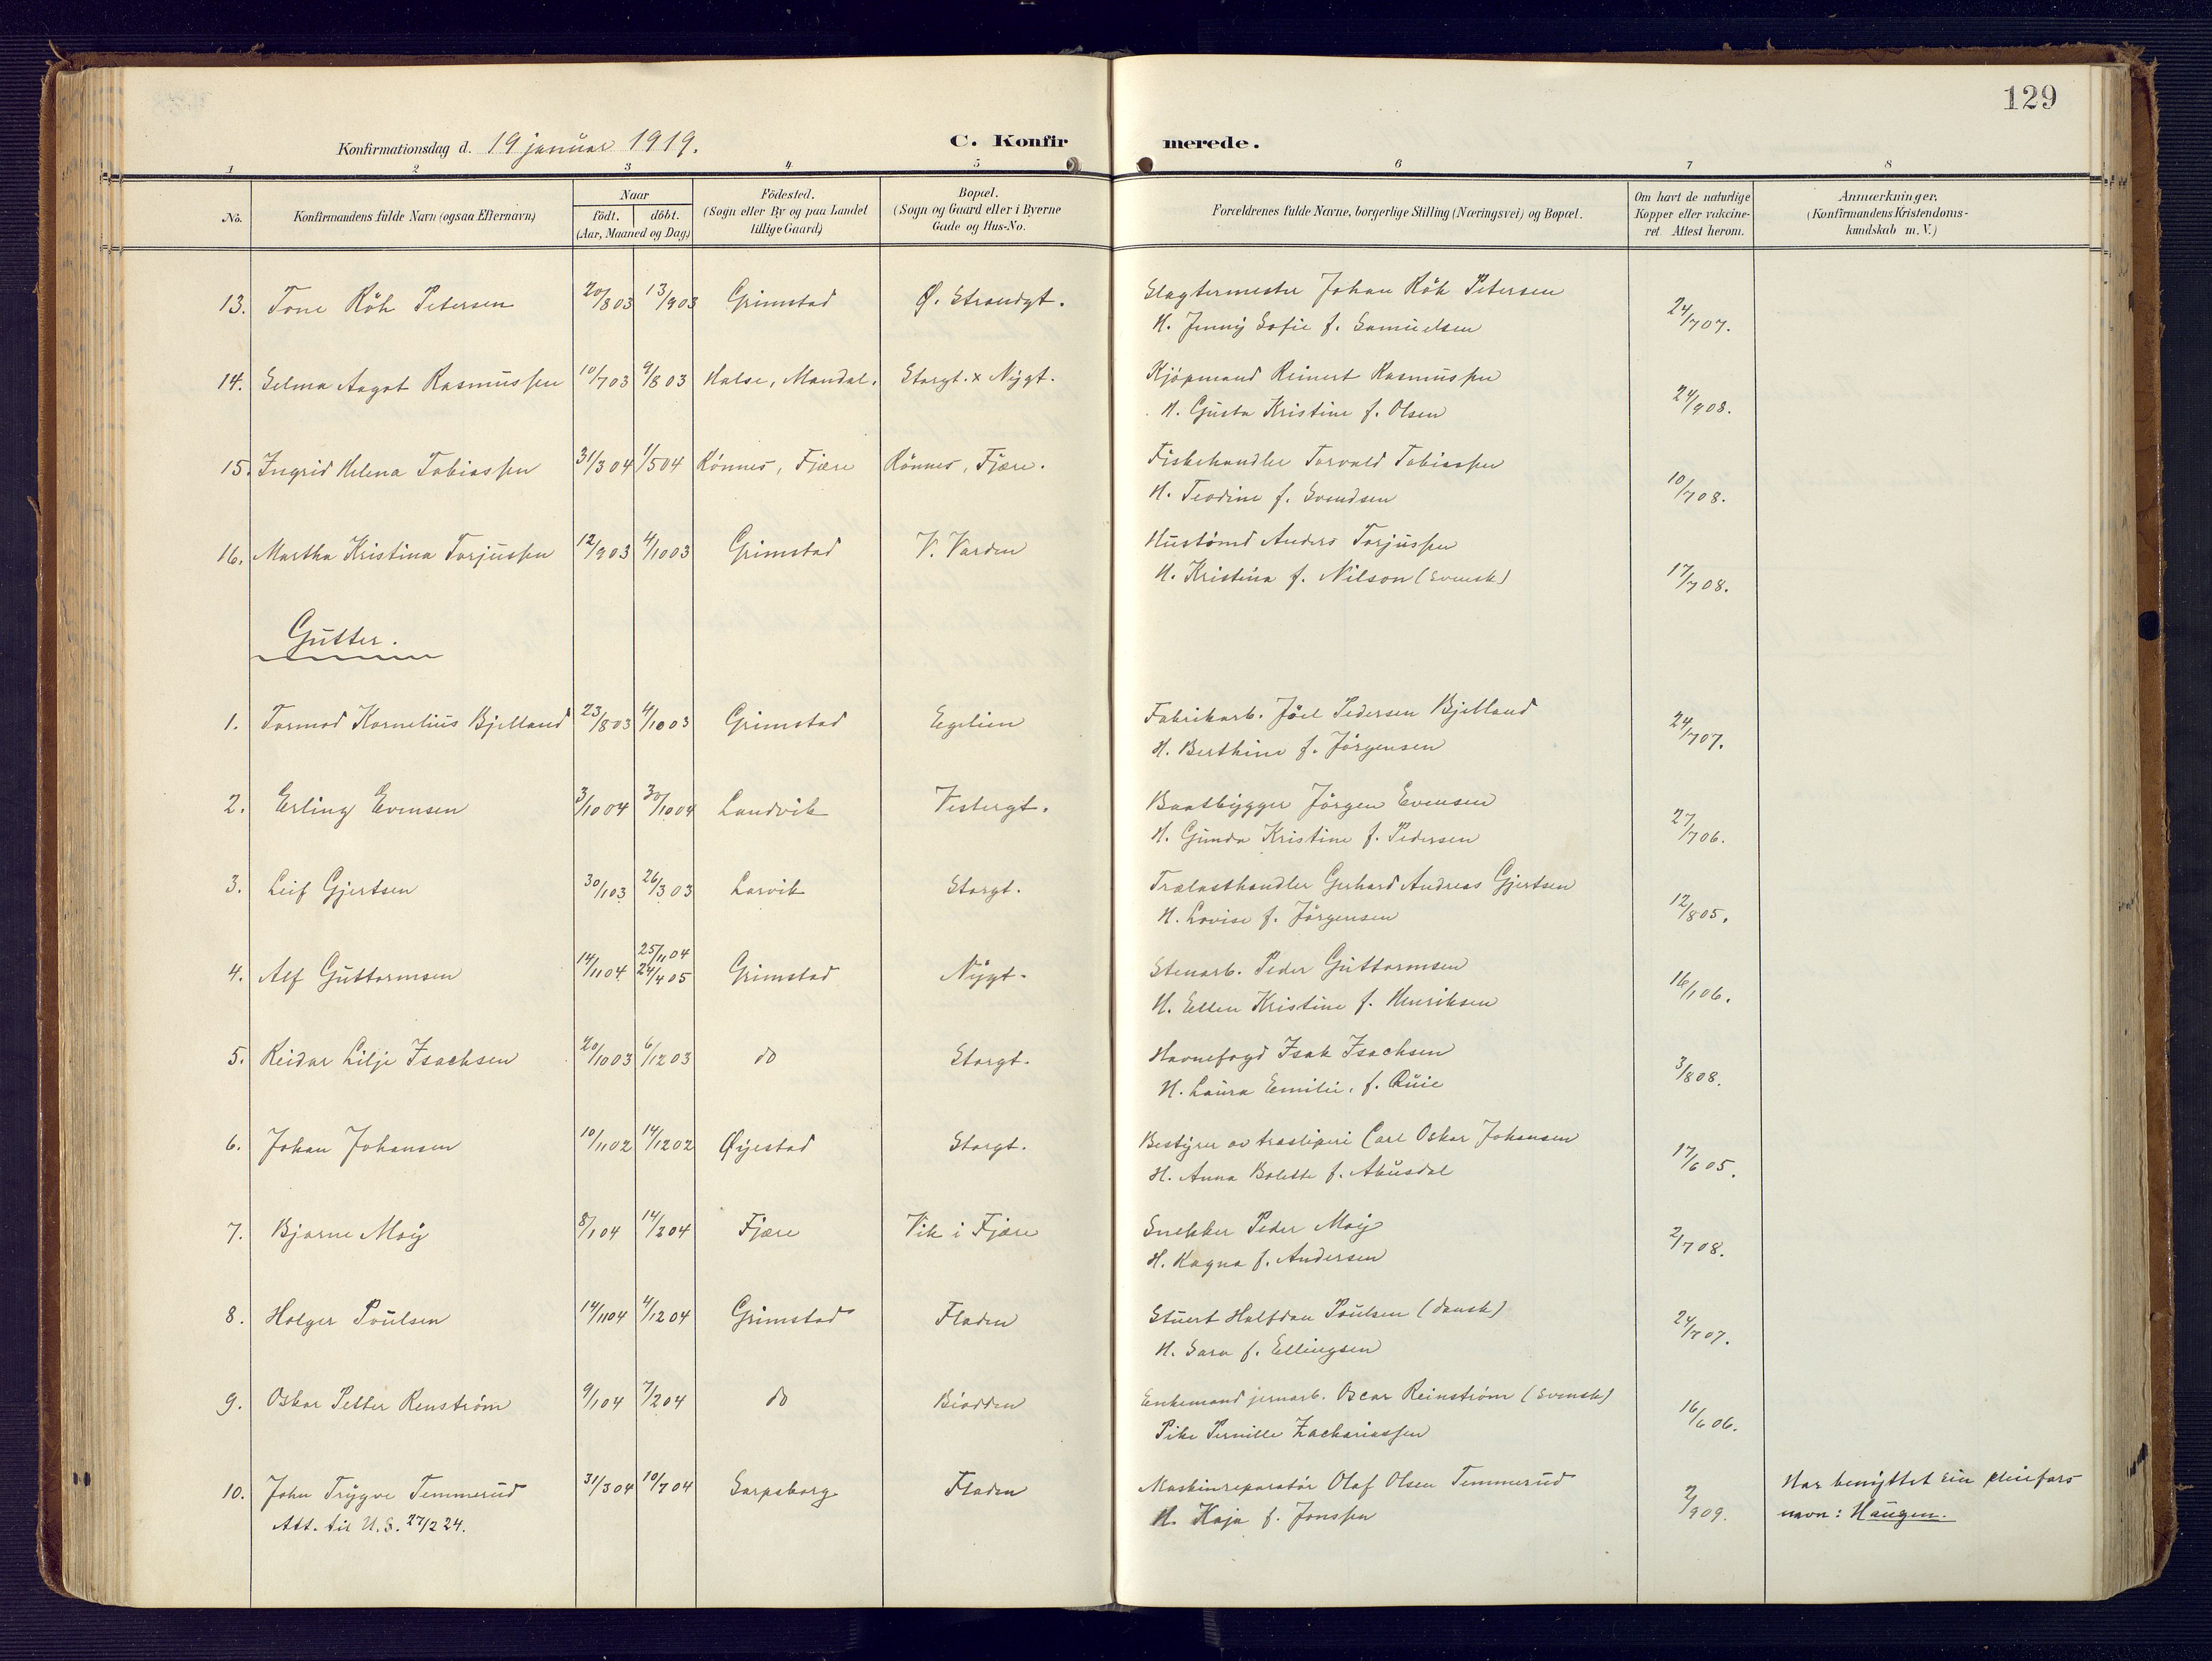 129
Konfirmationsdag d. 19 januar 1919.
C. Konfirmerede.
1 2 3 4 5 6 7 8
No.
Konfirmandens fulde Navn (ogsaa Efternavn)
Naar
födt. döbt.
(Aar, Maaned og Dag)
Födested.
(Sogn eller By og paa Landet
tillige Gaard)
Bopæl.
(Sogn og Gaard eller i Byerne
Gade og Hus-No.
Forældrenes fulde Navne, borgerlige Stilling (Næringsvei) og Bopæl.
Om havt de naturlige
Kopper eller vakcine-
ret. Attest herom.
Anmærkninger.
(Konfirmandens Kristendoms-
kundskab m. V.)
13. Tone Röh Petersen 20/8 03 13/9 03 Grimstad Ø. Strandgt. Slagtermester Johan Röh Petersen
H. Jenny Sofie f. Samuelsen 24/7 07.
14. Selma Aagot Rasmussen 10/7 03 9/8 03 Halse, Mandal. Storgt. x Nygt. Kjöpmand Reinert Rasmussen
H. Gusta Kristine f. Olsen 24/9 08.
15. Ingrid Helena Tobiassen 31/3 04 1/5 04 Rönnes, Fjære Rönnes, Fjære. Fiskehandler Torvald Tobiassen
H. Teodine f. Svendsen 10/7 08.
16. Martha Kristina Torjussen 12/9 03 4/10 03 Grimstad V. Varden Hustömd Anders Torjussen
H. Kristina f. Nilson (svensk) 17/7 08.
Gutter.
1. Tormod Kornelius Bjelland 23/8 03 4/10 03 Grimstad Egelien Fabrikarb. Jöel Pedersen Bjelland
H. Berthine f. Jörgensen 24/7 07.
2. Erling Evensen 3/10 04 30/10 04 Landvik Vestergt. Baatbygger Jörgen Evensen
H. Gunda Kristine f. Pedersen 27/7 06.
3. Leif Gjertsen 30/1 03 26/3 03 Larvik Storgt. Trælasthandler Gerhard Andreas Gjertsen
H. Lovise f. Jörgensen 12/8 05.
4. Alf Guttormsen 14/11 04 25/11 04
24/4 05 Grimstad Nygt. Stenarb. Peder Guttormsen
H. Ellen Kristine f. Henriksen 16/1 06.
5. Reidar Lilje Isachsen 20/10 03 6/12 03 do Storgt. Havnefogd Isak Isachsen
H. Laura Emilie. f. 3/8 08.
6. Johan Johansen 10/11 02 14/12 02 Øyestad Storgt. Bestyrer av træsliperi Carl Oskar Johansen
H. Anna Bolette f. 17/6 05.
7. Bjarne Moij 8/1 04 14/2 04 Fjære Vik i Fjære Snekker Peder Moij
H. Ragna f. Andersen 2/7 08.
8. Holger Poulsen 14/11 04 4/12 04 Grimstad Fladen Stuert Halfdan Poulsen (dansk)
H. Sara f. Ellingsen 24/7 07.
9. Oskar Petter Renström 9/1 04 7/2 04 do Biodden Enkemand jernarb. Oscar Reinström (svensk)
Pike Pernille Zachariassen 16/6 06.
10. John Trygve Temmerud 31/3 04 10/7 04 Sarpsborg Fladen Maskinreparatör Olaf Olsen Temmerud
Att. til U.S. 27/2 24. H. Kaja f. Jonssen 2/9 09. Har benyttet sin pleiefars
navn: Haugen.